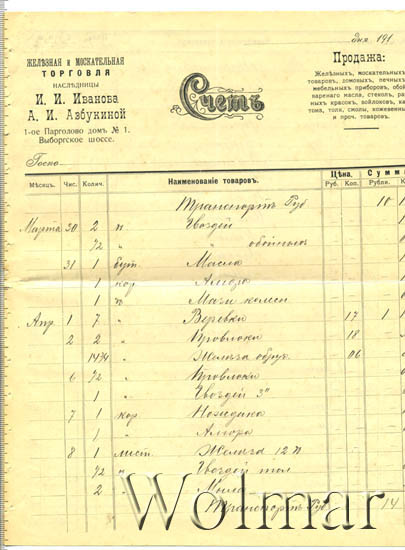 дня 191
ЖЕЛѢЗНАЯ и МОСКАТЕЛЬНАЯ
ТОРГОВЛЯ
НАСЛѢДНИЦЫ
И. И. Иванова
А. И. Азбукиной
1-ое Парголово домъ № 1.
Выборгское шоссе.
Счетъ
Продажа:
Желѣзныхъ, москательныхъ
товаровъ, домовыхъ, печныхъ
мебельныхъ приборовъ, обой
варенаго масла, стеколъ, раз
ныхъ красокъ, войлоковъ, ка
тома, толя, смолы, кожевенны
и проч. товаровъ.
Госпо
Мѣсяцъ. Чис. Колич. Наименованіе товаровъ. Цѣна. Сумма
Руб. Коп. Рубли.
Транспортъ Руб 10
Марта 30 2 п. Гвоздей
1/2 " " обойныхъ
31 1 бут. Масла
1 кор
1 п Мази колесн
Апр. 1 7 " Веревки 17 1
2 2 " Проволоки 18
" Желѣза обруч. 06
6 1/2 " Проволоки
1 " Гвоздей 3"
7 1 кор.
1 "
8 1 лист. Желѣза 12 п
1/2 " Гвоздей тол
2 " Мыла
Транспортъ Руб. 14
Wolmar